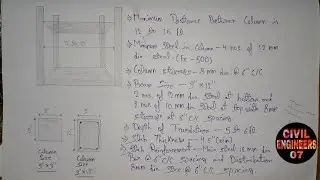 → Maximum Distance Between Column is
12 to 16 ft
→ Minimum Steel in Column - 4 nos of 12 mm
dia steel (Fe-500)
→ Column stirrups - 8 mm dia @ 6" C/C
→ Beam Size - 9" × 15"
2 nos. of 12 mm dia steel at bottom and
2 nos. of 10 mm dia steel at top with 8mm
stirrups at 6" C/C spacing
→ Depth of Foundation - 5 to 6 ft
→ Slab Thickness - 4.5" (min)
→ Slab Reinforcement - Main steel 10 mm dia
Bar @ 6" C/C spacing and Distribution
8mm dia Bar @ 6" C/C spacing
Column
Size
9" × 9"
Beam
Size
9" × 15"
CIVIL
ENGINEERS
07